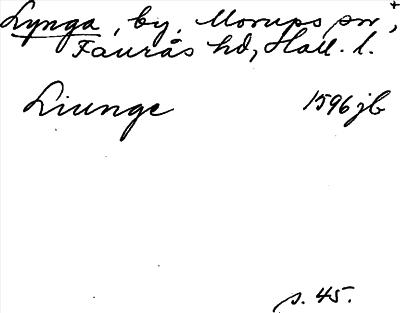 Lynga, by, Morups sn+,
Faurås hd, Hall. l.
Liunge 1596 jb
s. 45.